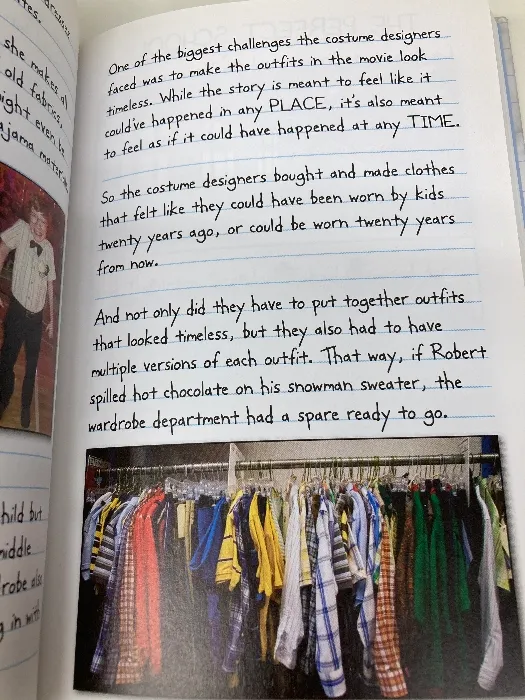 she makes
old fabrics,
even
but
middle
in with
One of the biggest challenges the costume designers
faced was to make the outfits in the movie look
timeless. While the story is meant to feel like it
could've happened in any PLACE, it's also meant
to feel as if it could have happened at any TIME.
So the costume designers bought and made clothes
that felt like they could have been worn by kids
twenty years ago, or could be worn twenty years
from now.
And not only did they have to put together outfits
that looked timeless, but they also had to have
multiple versions of each outfit. That way, if Robert
spilled hot chocolate on his snowman sweater, the
wardrobe department had a spare ready to go.